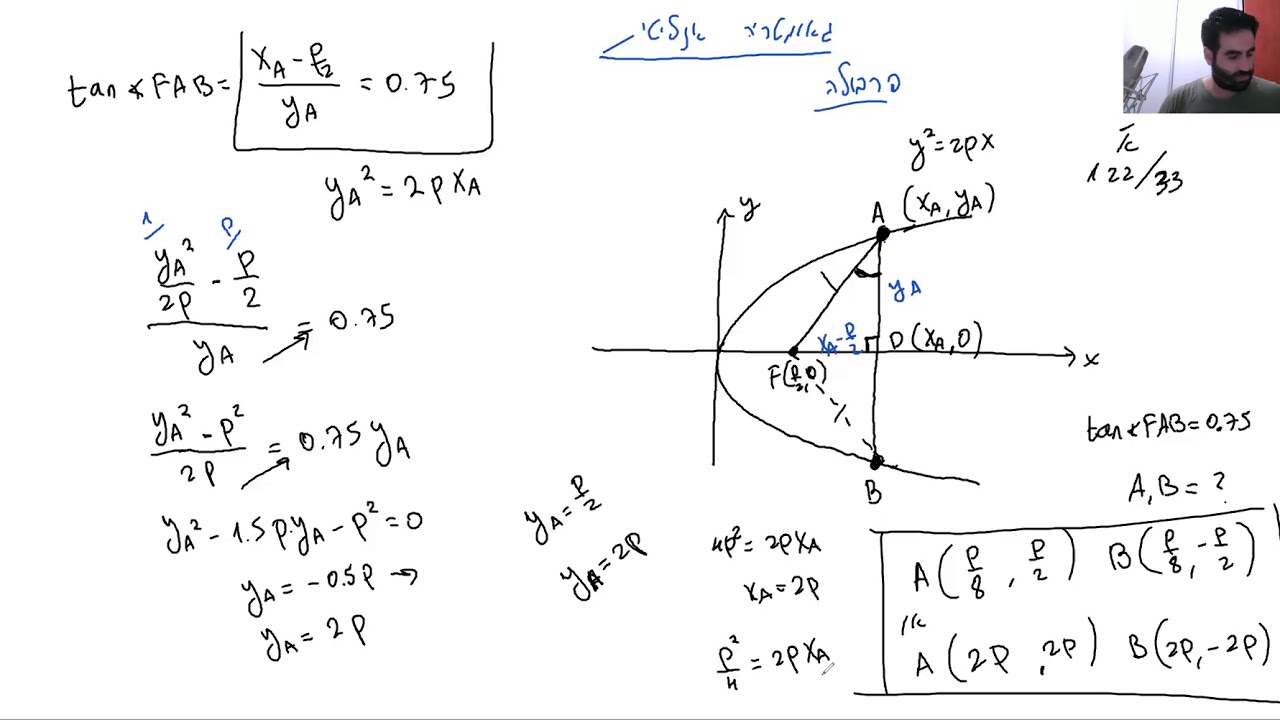 גאומטריה אנליטי
פרבולה
א
122/33
tan∢FAB = (x_A - p/2)/y_A = 0.75
y_A² = 2px_A
1/ p/
(y_A²/2p - p/2)/y_A = 0.75
(y_A² - p²)/2p = 0.75 y_A
y_A² - 1.5p·y_A - p² = 0
y_A = -0.5p →
y_A = 2p
y_A = p/2
y_A = 2p
y² = 2px
y
A (x_A, y_A)
y_A
x_A - p/2
D(x_A, 0)
F(p/2, 0)
x
B
tan∢FAB = 0.75
A, B = ?
4p² = 2px_A
x_A = 2p
p²/4 = 2px_A
A(p/8, p/2) B(p/8, -p/2)
או
A(2p, 2p) B(2p, -2p)